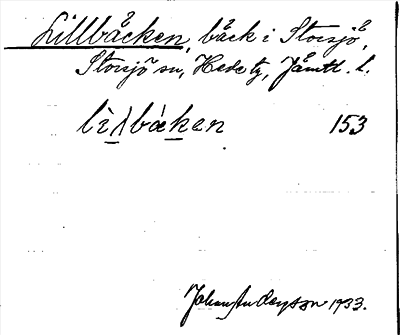 Lillbäcken, bäck i Storsjö,
Storsjö sn, Hede tg, Jämtl. l.
lìλbáken 153
Johan Anderson 1933.